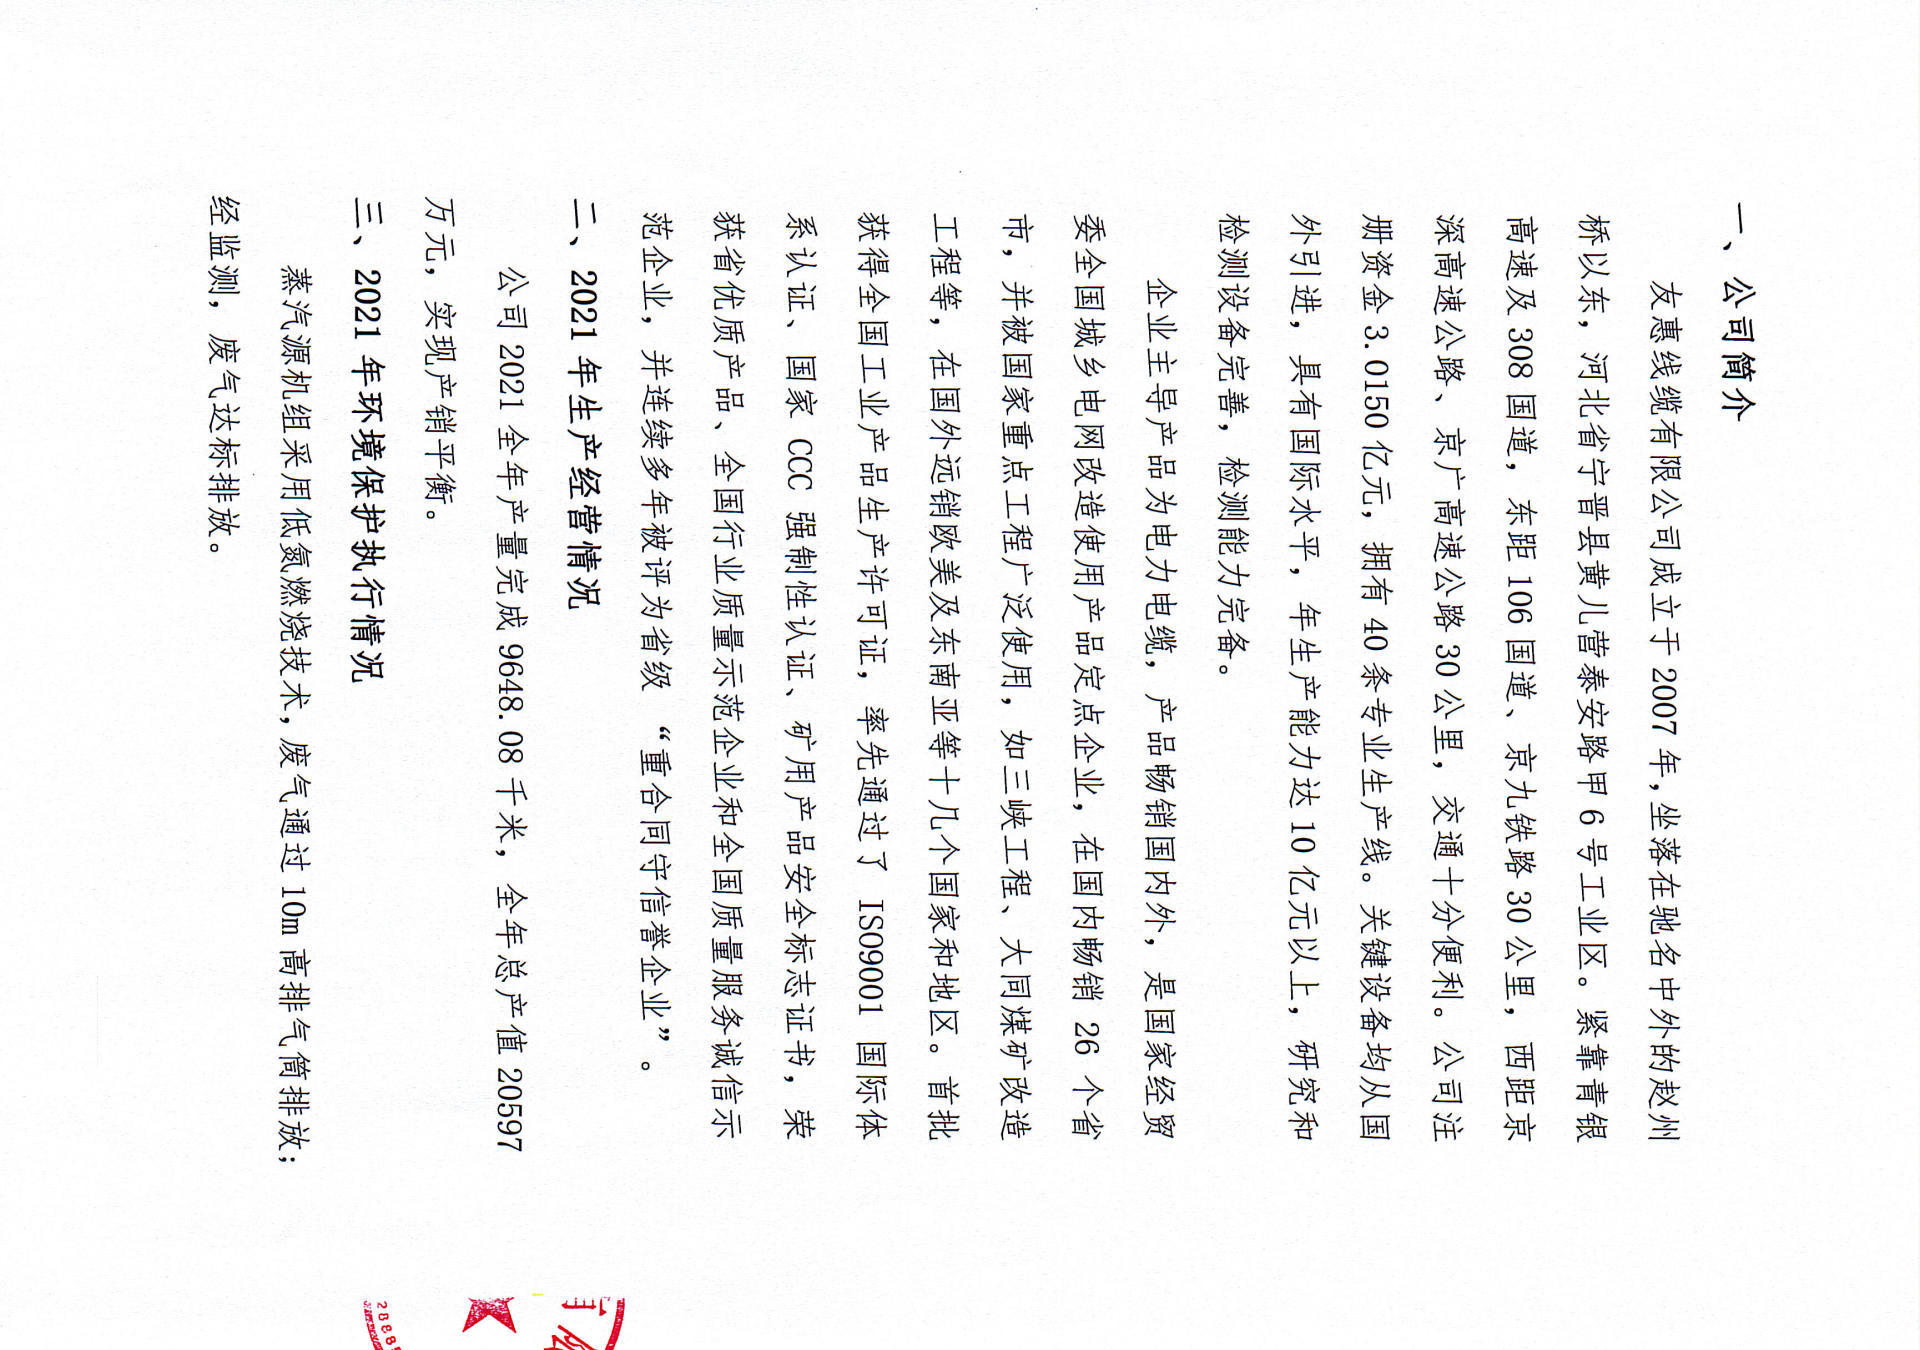 一、公司简介
友惠线缆有限公司成立于 2007 年,坐落在驰名中外的赵州
桥以东，河北省宁晋县黄儿营泰安路甲 6 号工业区。紧靠青银
高速及 308 国道，东距 106 国道、京九铁路 30 公里，西距京
深高速公路、京广高速公路 30 公里，交通十分便利。公司注
册资金 3.0150 亿元，拥有 40 条专业生产线。关键设备均从国
外引进，具有国际水平，年生产能力达 10 亿元以上，研究和
检测设备完善，检测能力完备。
企业主导产品为电力电缆，产品畅销国内外，是国家经贸
委全国城乡电网改造使用产品定点企业，在国内畅销 26 个省
市，并被国家重点工程广泛使用，如三峡工程、大同煤矿改造
工程等，在国外远销欧美及东南亚等十几个国家和地区。首批
获得全国工业产品生产许可证，率先通过了 ISO9001 国际体
系认证、国家 CCC 强制性认证、矿用产品安全标志证书，荣
获省优质产品、全国行业质量示范企业和全国质量服务诚信示
范企业，并连续多年被评为省级 “重合同守信誉企业”。
二、2021 年生产经营情况
公司 2021 全年产量完成 9648.08 千米，全年总产值 20597
万元，实现产销平衡。
三、2021 年环境保护执行情况
蒸汽源机组采用低氮燃烧技术,废气通过 10m 高排气筒排放;
经监测，废气达标排放。